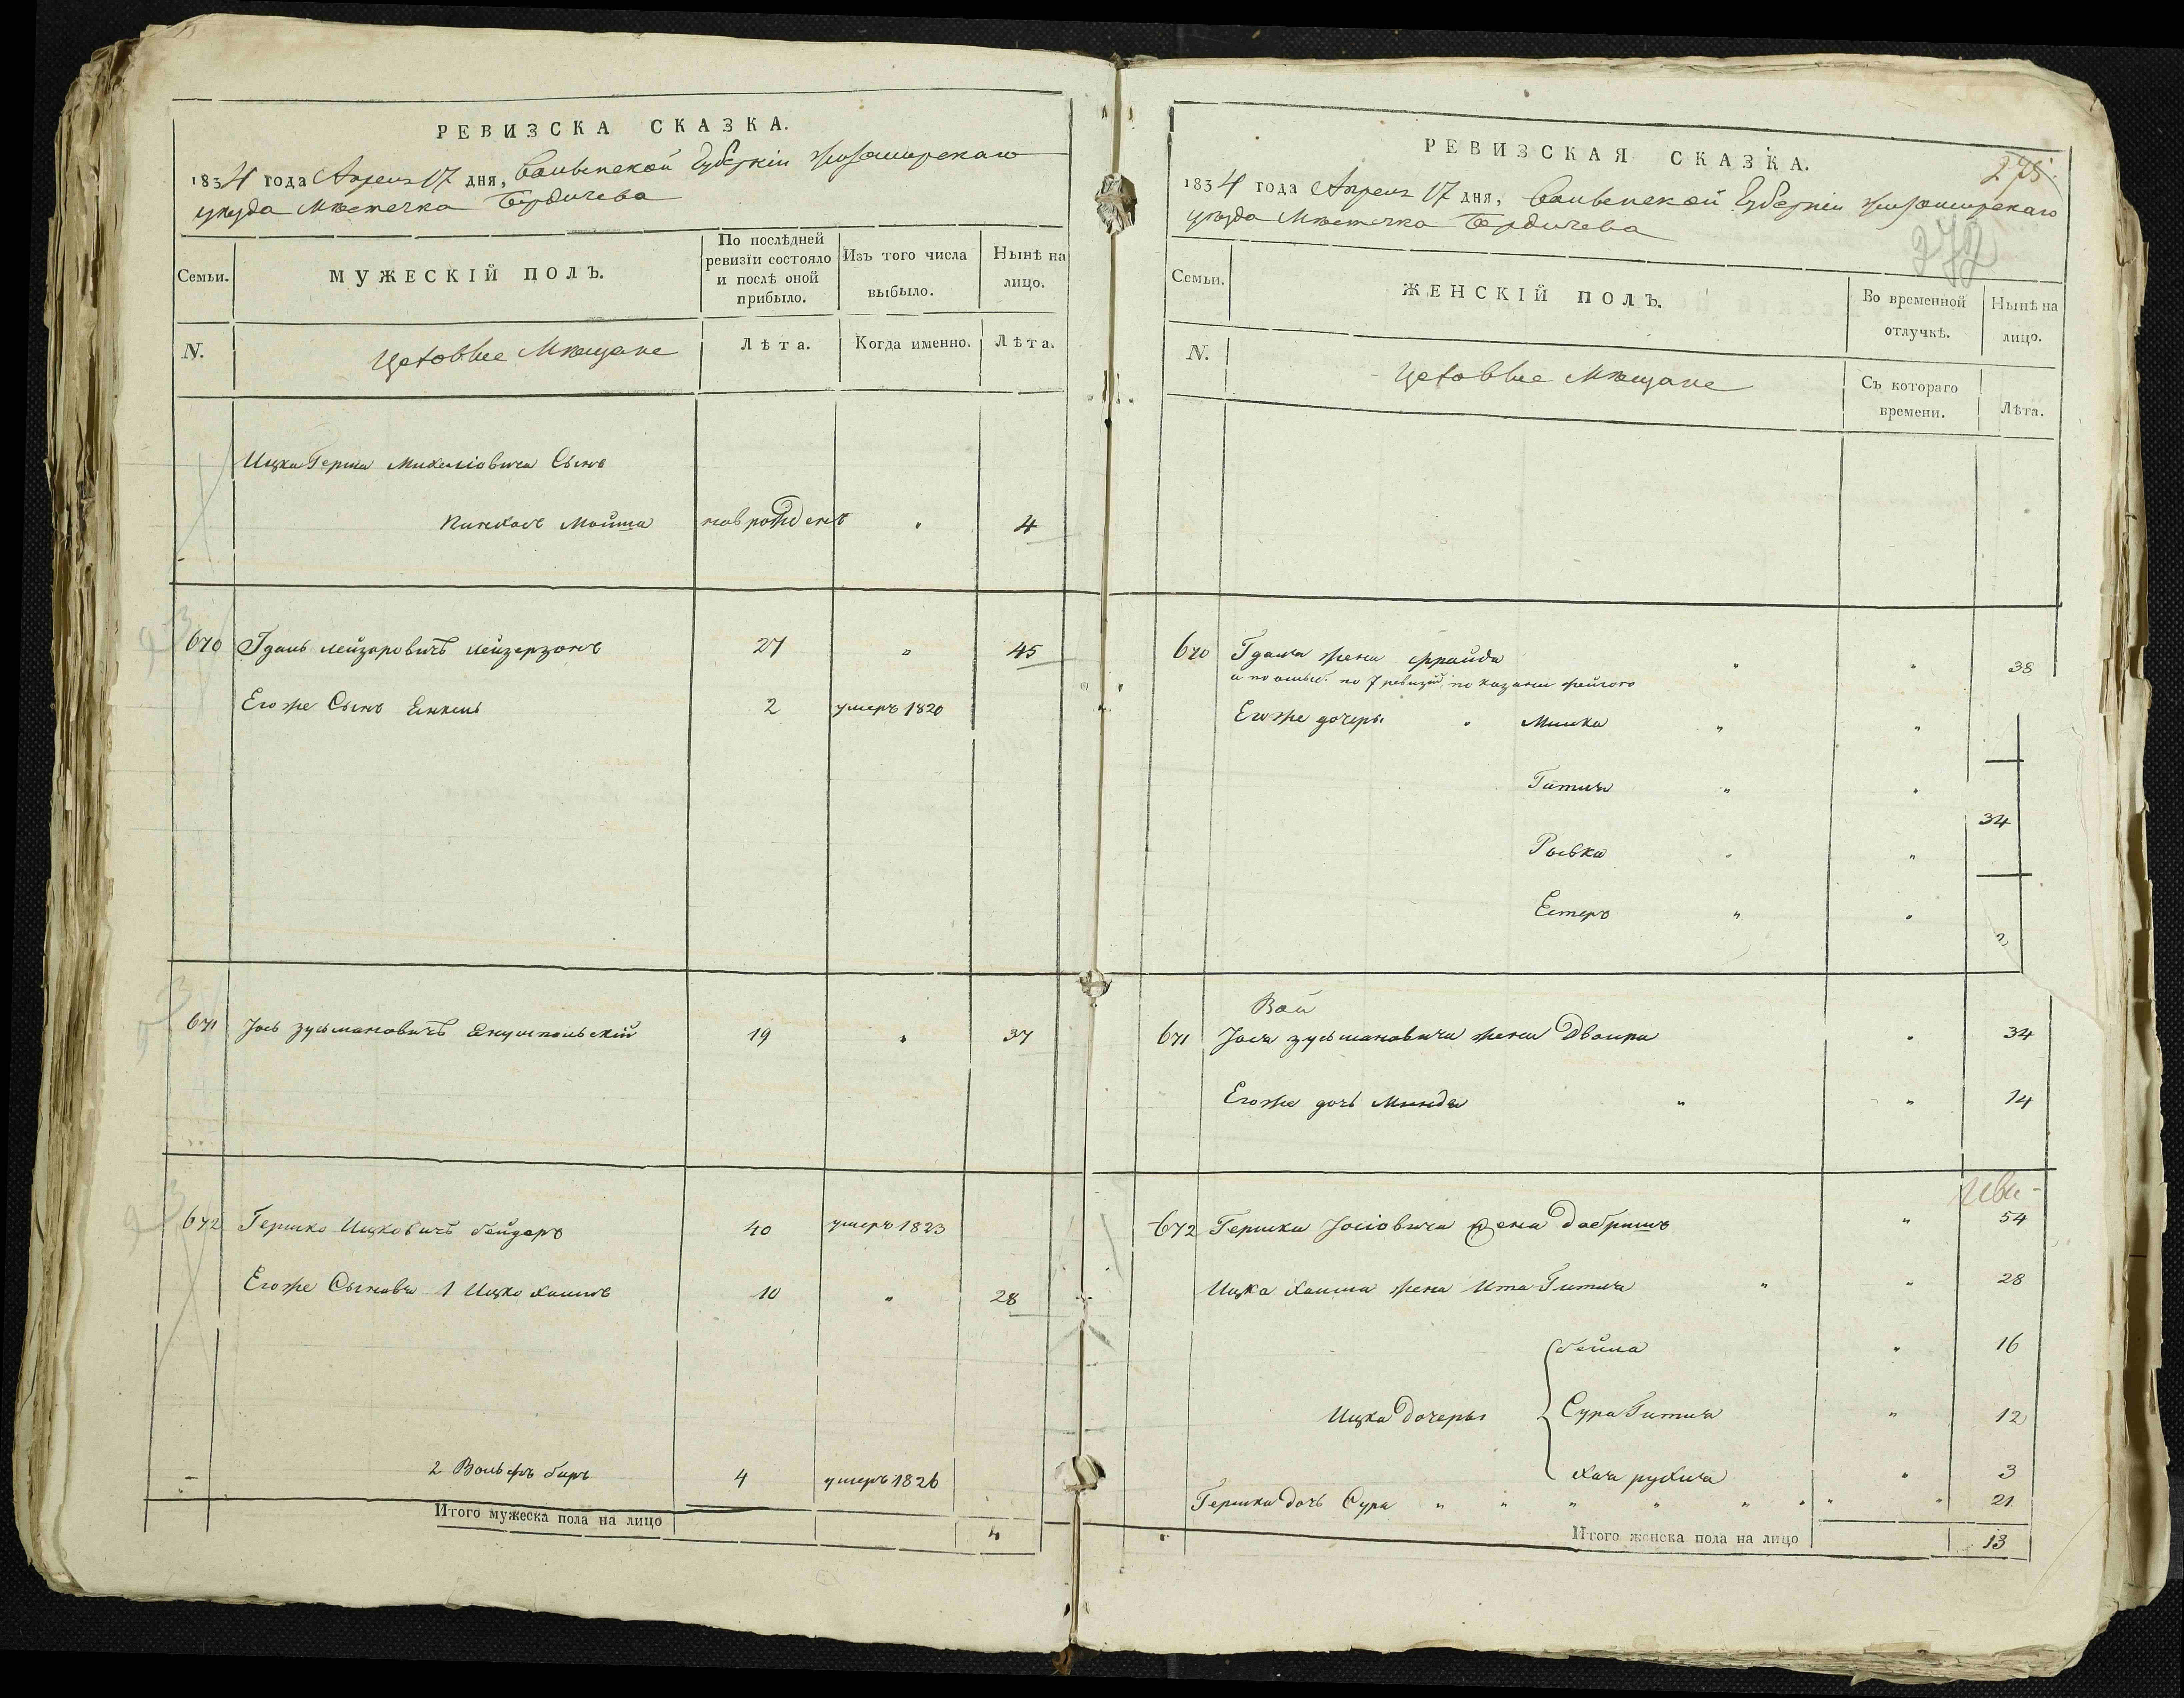 РЕВИЗСКА СКАЗКА.
1834 года Апреля 17 дня, Волынской Губерніи Житомирскаго
уезда Мѣстечка Бердичева
Семьи.
МУЖЕСКІЙ ПОЛЪ.
По послѣдней
ревизіи состояло
и послѣ оной
прибыло.
Изъ того числа
выбыло.
Нынѣ на
лицо.
N.
Цеховые Мѣщане
Лѣта.
Когда именно.
Лѣта.
Ицка Герша Михелiовича Сынъ
Пинхасъ Мойша новрожденъ " 4
670 Гдаль Лейзаровичъ Лейзерзонъ 27 " 45
Его же Сынъ Янкель 2 умеръ 1820
671 Іось Зусьмановичъ Янушпольскій 19 " 37
672 Гершко Ицковичъ 40 умеръ 1823
Его же Сыновья 1 Ицко Хаимъ 10 " 28
2 Вольфъ Беръ 4 умеръ 1826
Итого мужеска пола на лицо 4
РЕВИЗСКАЯ СКАЗКА.
275
1834 года Апреля 17 дня, Волынской Губерніи Житомирскаго
уезда Мѣстечка Бердичева
272
Семьи.
ЖЕНСКІЙ ПОЛЪ.
Во временной
отлучкѣ.
Нынѣ на
лицо.
N.
Цеховые Мѣщане
Съ котораго
времени.
Лѣта.
670 Гдаля жена Фрайда " " 38
а по ошиб. по 7 ревизіи показана
Его же дочеры " Минка " "
Гитля " "
34
Рывка " "
Естеръ " "
671 Іося Зусьмановича жена Двойра " 34
Его же дочь Минда " " 14
672 Гершка Іосіовича жена Добришъ " 54
Ицка Хаима жена Ита Гитля " " 28
Бейла " 16
Ицка дочеры Сура Гитля " 12
Хая Рухля " 3
Гершка дочь Сура " " " " " " " " 21
Итого женска пола на лицо 13